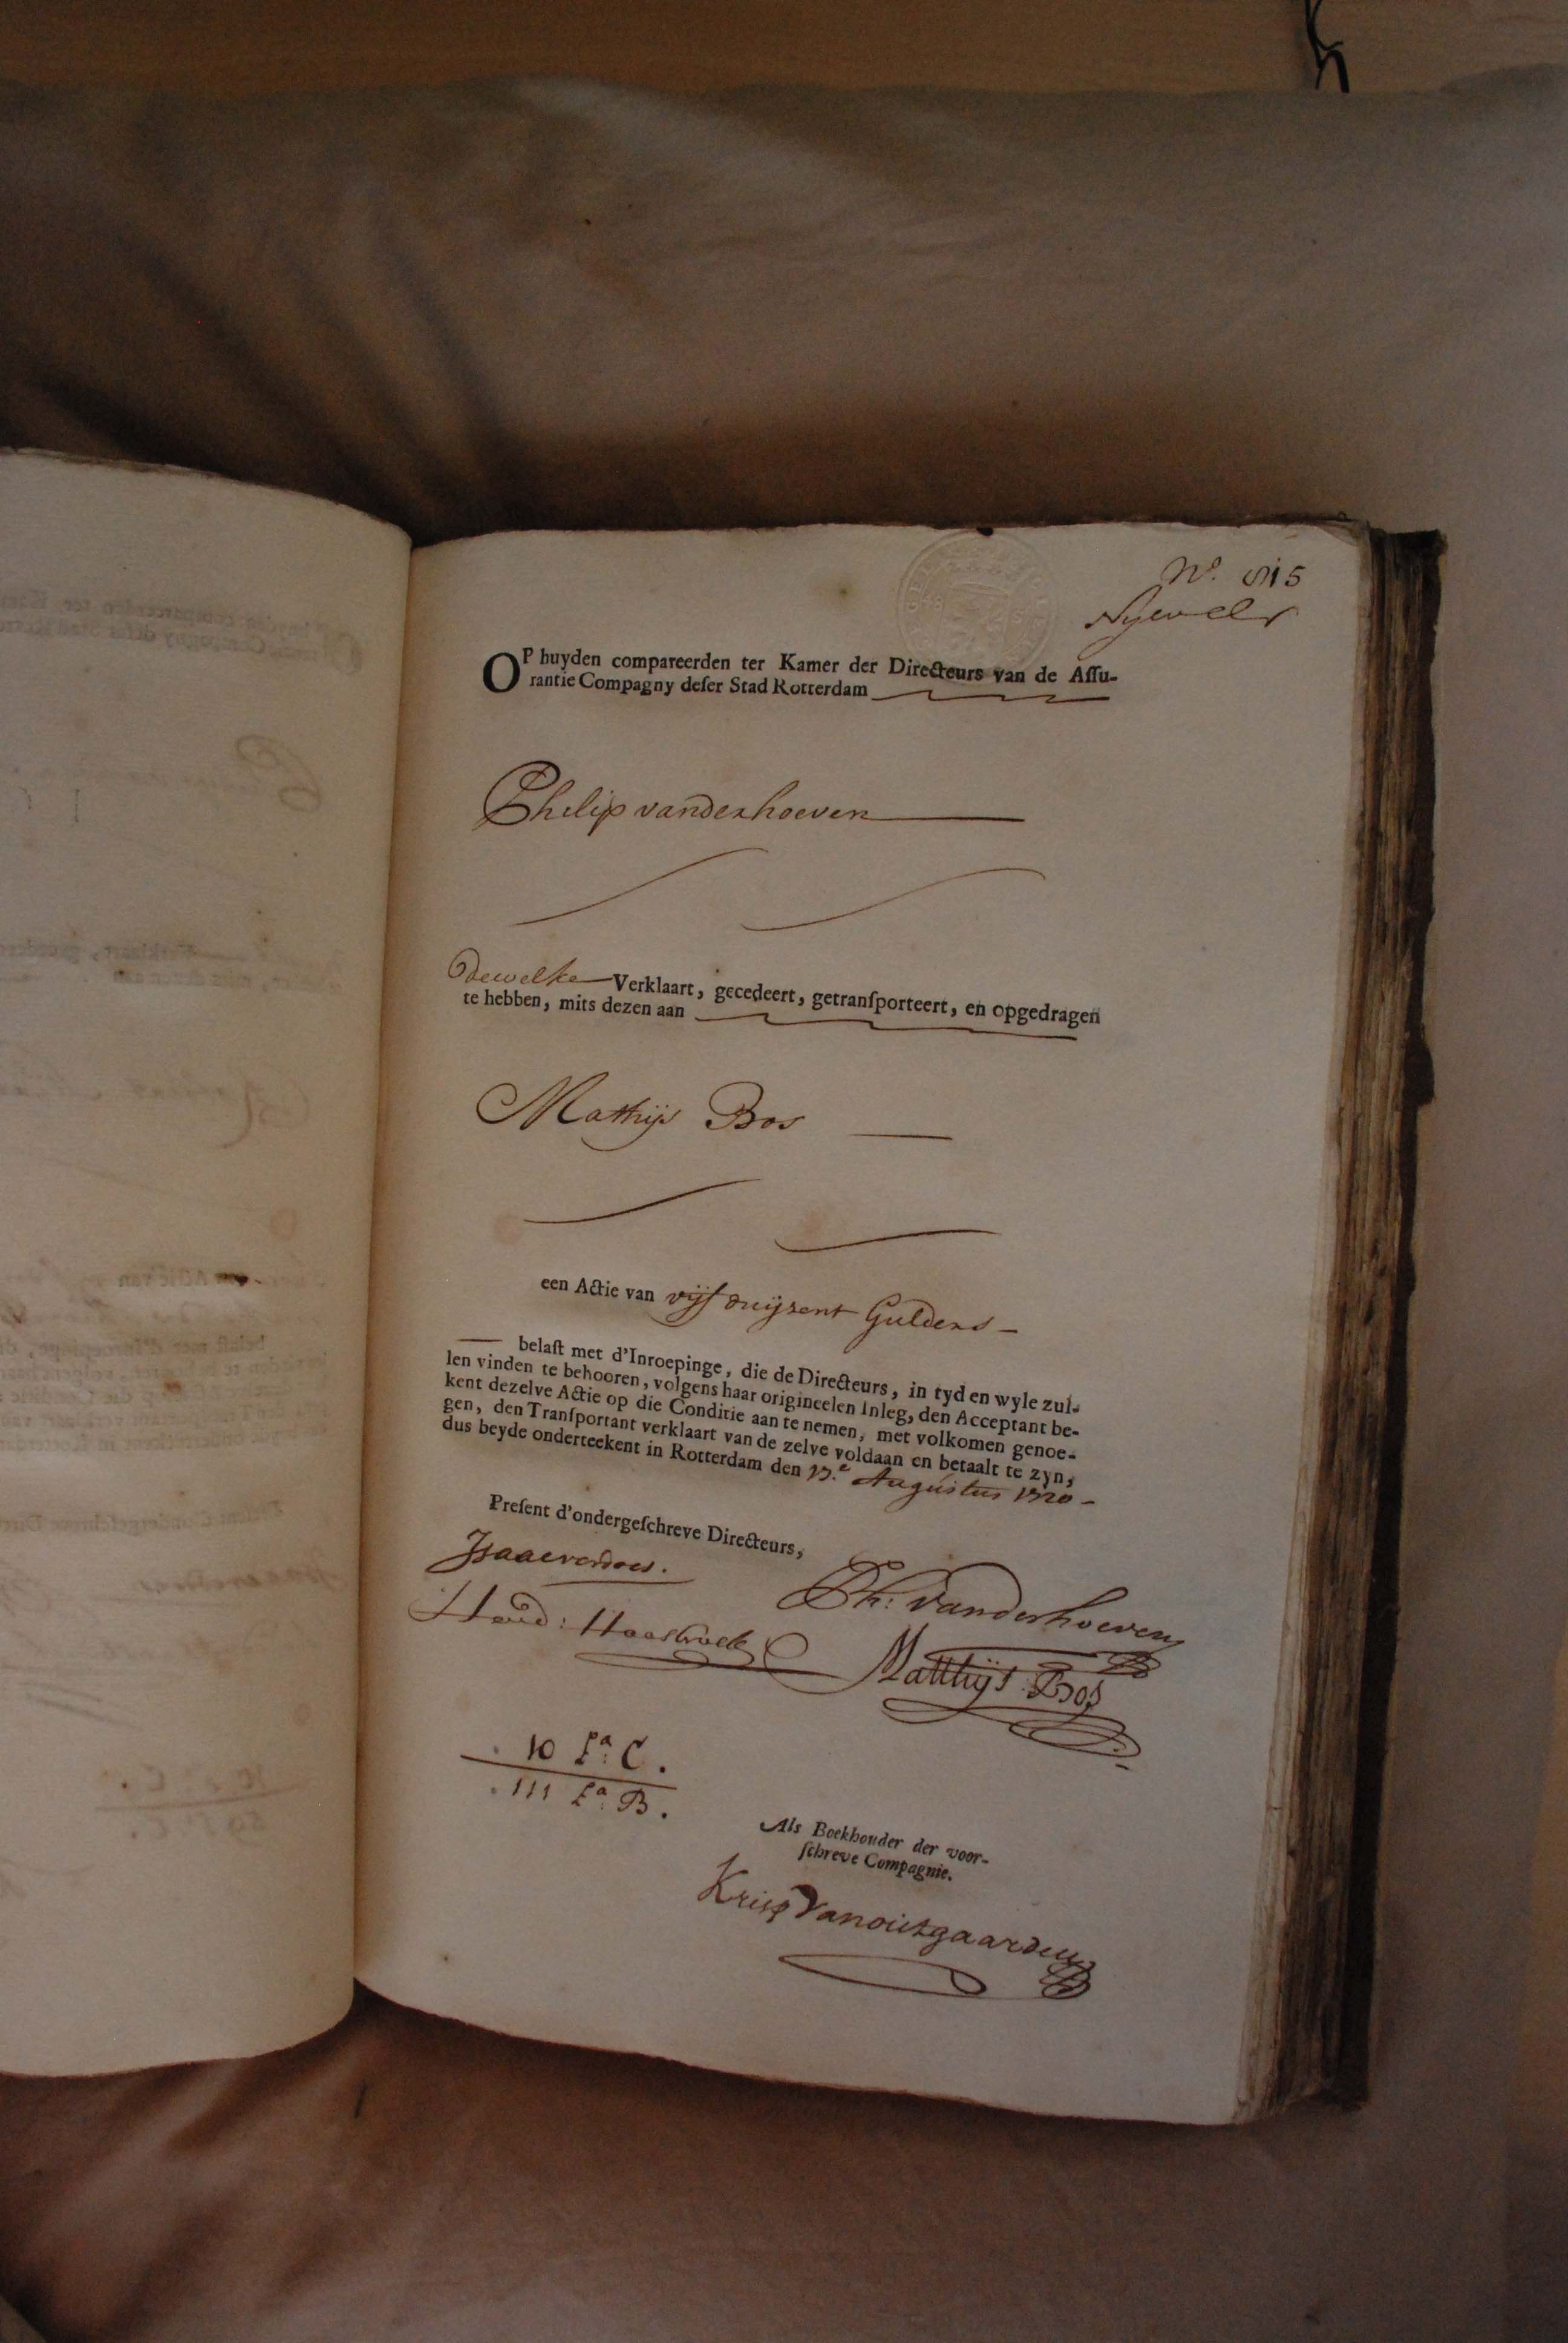 Nº. 515
Nyevelt
OP huyden compareerden ter Kamer der Directeurs van de Aſſu-
rantie Compagny deſer Stad Rotterdam
Philip vanderhoeven
dewelke Verklaart, gecedeert, getranſporteert, en opgedragen
te hebben, mits dezen aan
Mathijs Bos
een Actie van vijf duijzent Guldens
belaſt met d'Inroepinge, die de Directeurs, in tyd en wyle zul-
len vinden te behooren, volgens haar origineelen Inleg, den Acceptant be-
kent dezelve Actie op die Conditie aan te nemen, met volkomen genoe-
gen, den Tranſportant verklaart van de zelve voldaan en betaalt te zyn,
dus beyde onderteekent in Rotterdam den 17.e Augustus 1720
Preſent d'ondergeſchreve Directeurs,
Isaac verdoes.
Ph: Vanderhoeven
Matthijs Bos
10 Lª: C.
111 Lª: B.
Als Boekhouder der voor-
ſchreve Compagnie.
Krisp Vanoutgaarden